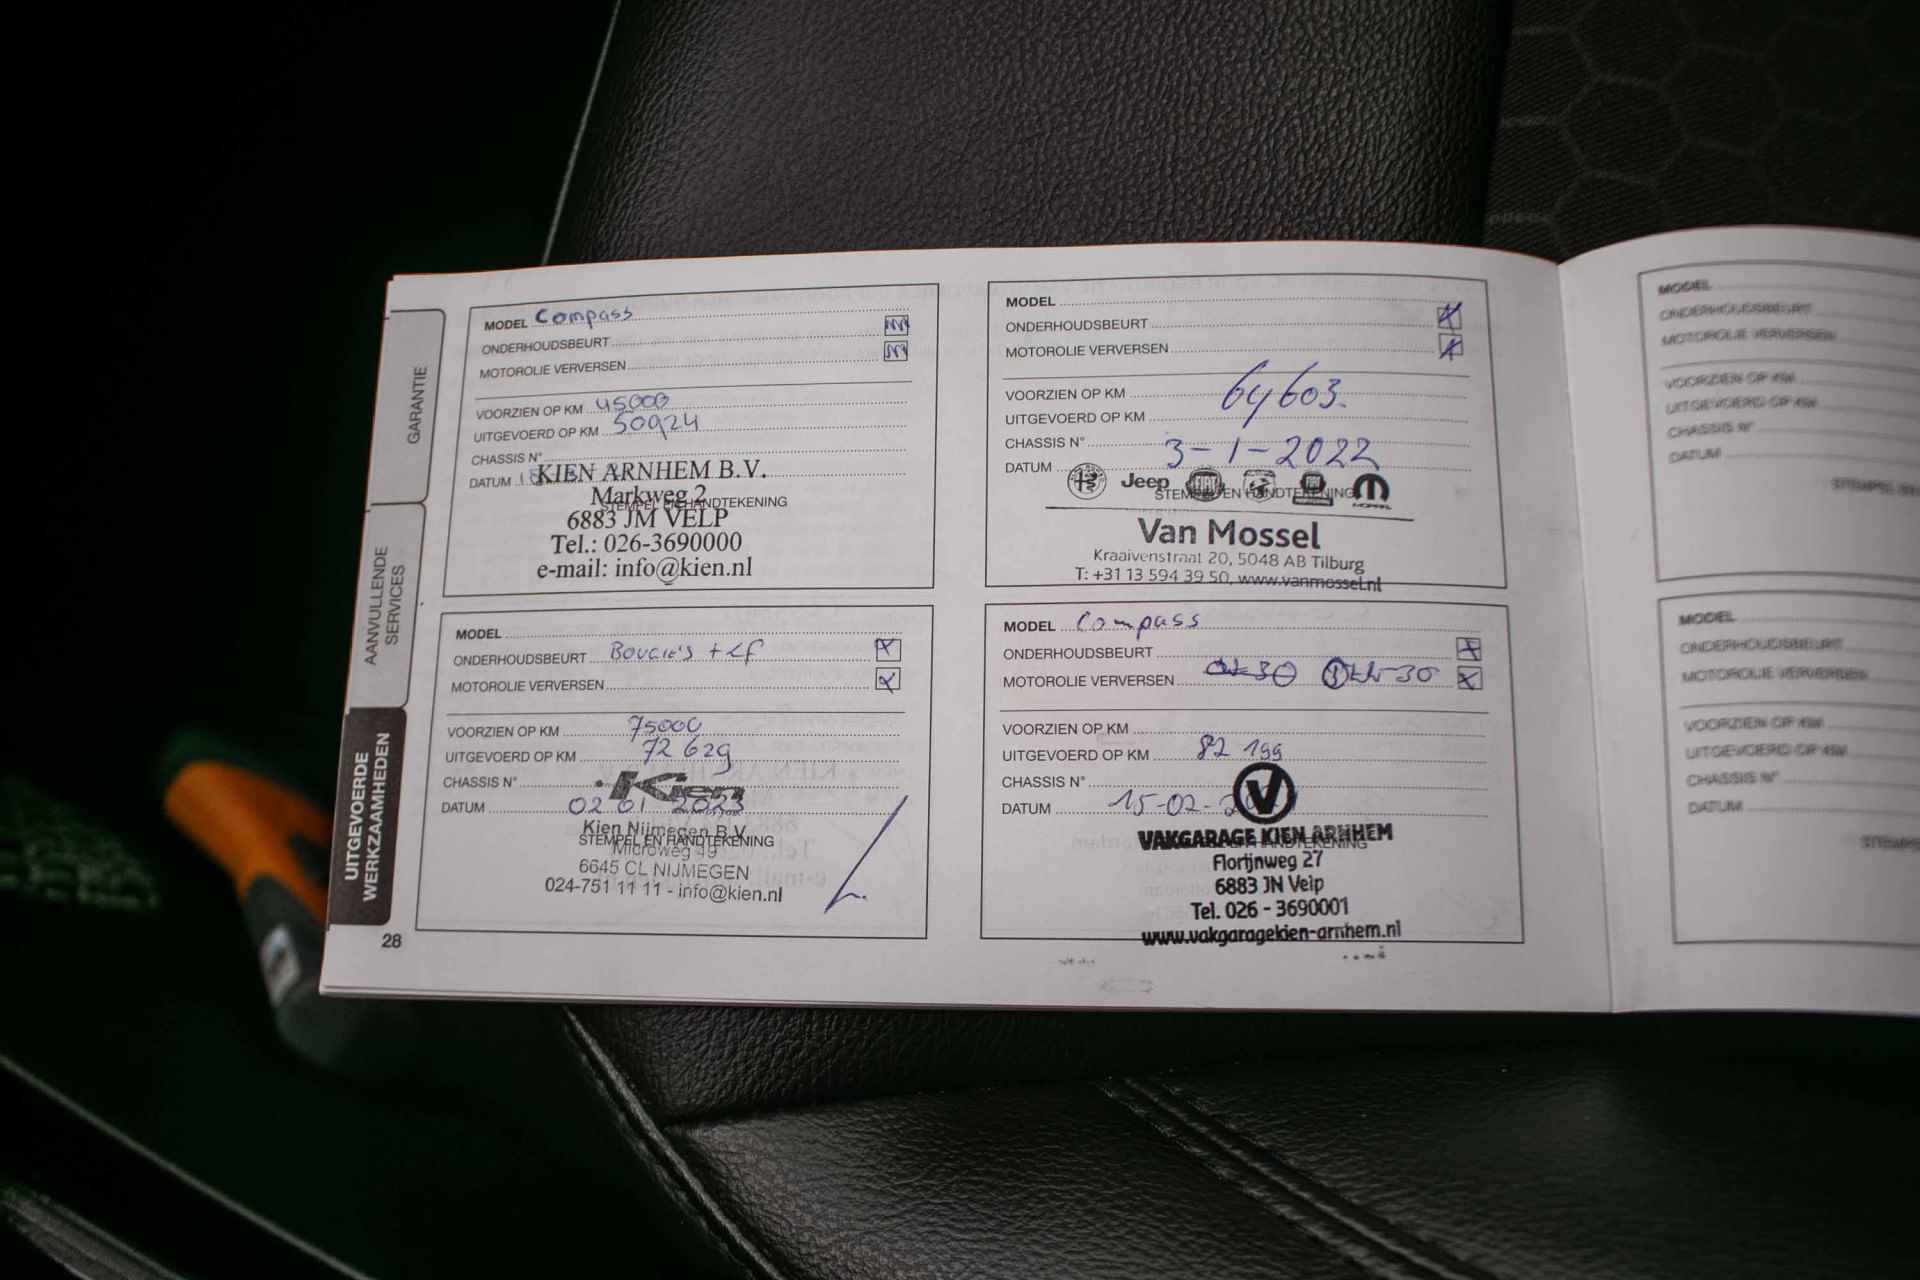 GARANTIE
AANVULLENDE SERVICES
UITGEVOERDE WERKZAAMHEDEN
MODEL Compass
ONDERHOUDSBEURT
MOTOROLIE VERVERSEN
VOORZIEN OP KM 45000
UITGEVOERD OP KM 50924
CHASSIS N°
DATUM
KIEN ARNHEM B.V.
Markweg 2
STEMPEL EN HANDTEKENING
6883 JM VELP
Tel.: 026-3690000
e-mail: info@kien.nl
MODEL
ONDERHOUDSBEURT X
MOTOROLIE VERVERSEN X
VOORZIEN OP KM
64603.
UITGEVOERD OP KM
CHASSIS N°
DATUM 3-1-2022
Jeep FIAT
STEMPEL EN HANDTEKENING
MOPAR
Van Mossel
Kraaivenstraat 20, 5048 AB Tilburg
T: +31 13 594 39 50, www.vanmossel.nl
MODEL
ONDERHOUDSBEURT Bougie's + Lf X
MOTOROLIE VERVERSEN X
VOORZIEN OP KM 75000
UITGEVOERD OP KM 72 629
CHASSIS N°
Kien
DATUM 02 01 2023
Kien Nijmegen B.V.
STEMPEL EN HANDTEKENING
Microweg 49
6645 CL NIJMEGEN
024-751 11 11 - info@kien.nl
MODEL Compass
ONDERHOUDSBEURT X
MOTOROLIE VERVERSEN X
VOORZIEN OP KM
UITGEVOERD OP KM 82 199
CHASSIS N°
DATUM 15-02-2
V
VAKGARAGE KIEN ARNHEM
Florijnweg 27
6883 JN Velp
Tel. 026 - 3690001
www.vakgaragekien-arnhem.nl
28
MODEL
ONDERHOUDSBEURT
MOTOROLIE VERVERSEN
VOORZIEN OP KM
UITGEVOERD OP KM
CHASSIS N°
DATUM
MODEL
ONDERHOUDSBEURT
MOTOROLIE VERVERSEN
VOORZIEN OP KM
UITGEVOERD OP KM
CHASSIS N°
DATUM